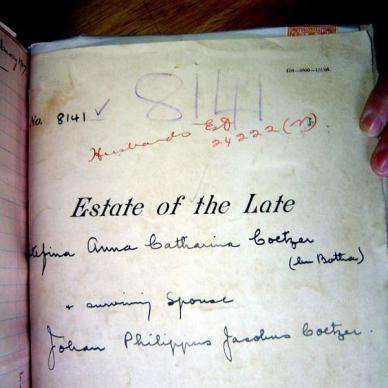 No. 8141 ✓
8141
Husbands Est
24222 (N)
Estate of the Late
Anna Catharina Coetzer
(born Botha)
& surviving Spouse
Johan Philippus Jacobus Coetzer.